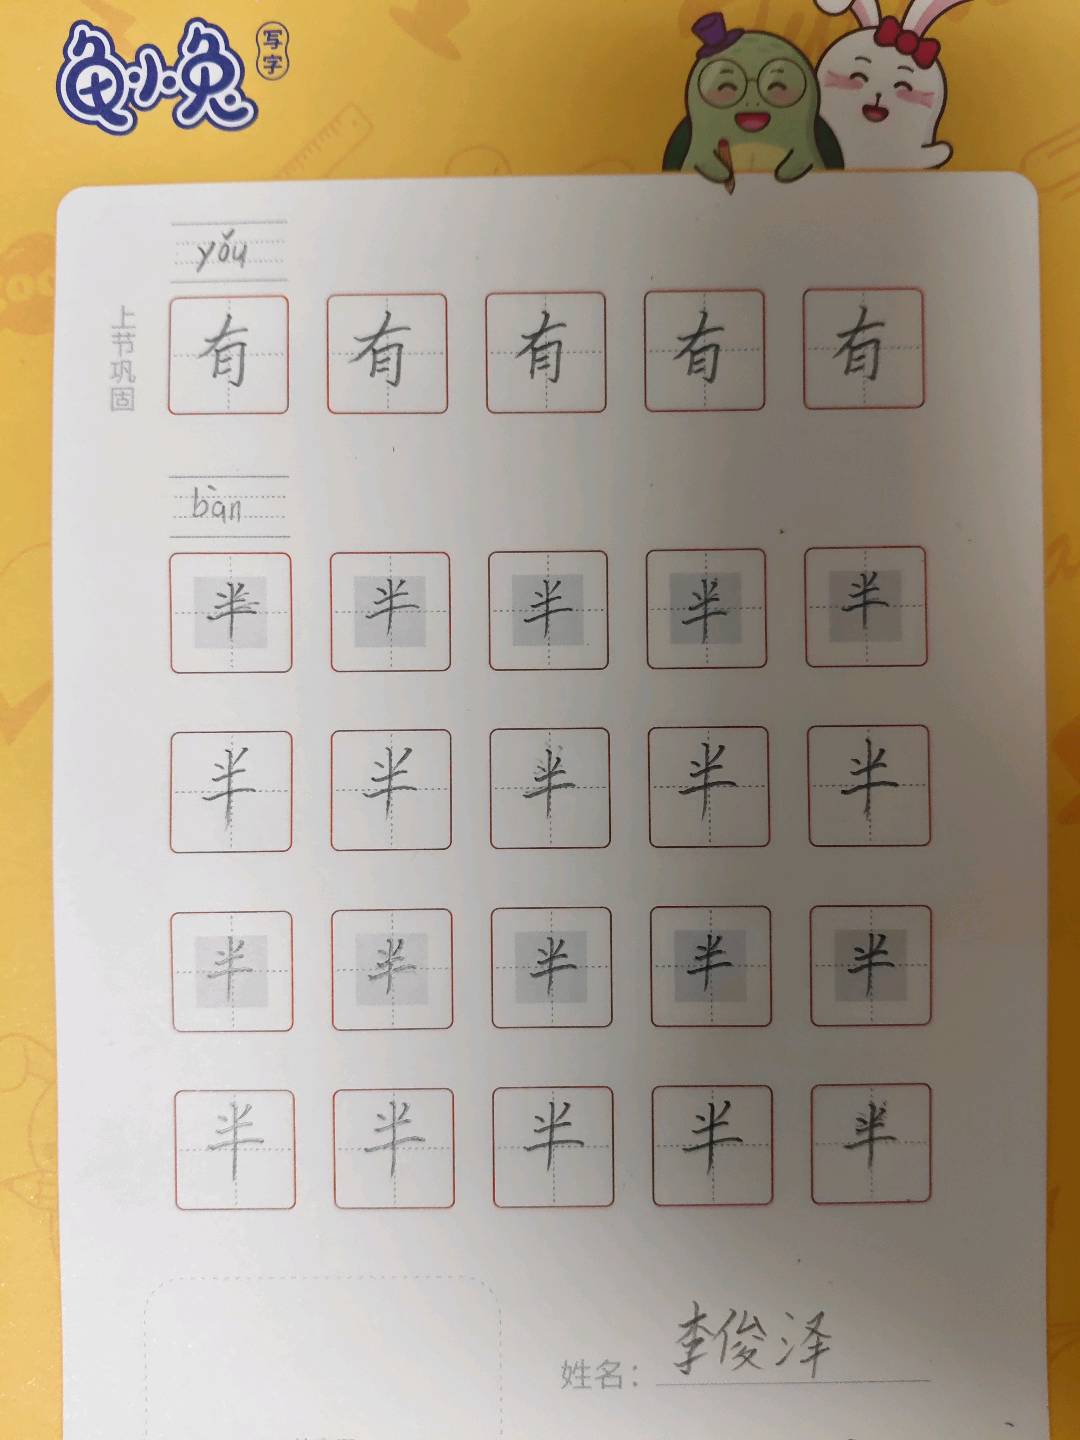 龟小兔 写字
yǒu
上节巩固
有 有 有 有 有
bàn
半 半 半 半 半
半 半 半 半 半
半 半 半 半 半
半 半 半 半 半
姓名：李俊泽